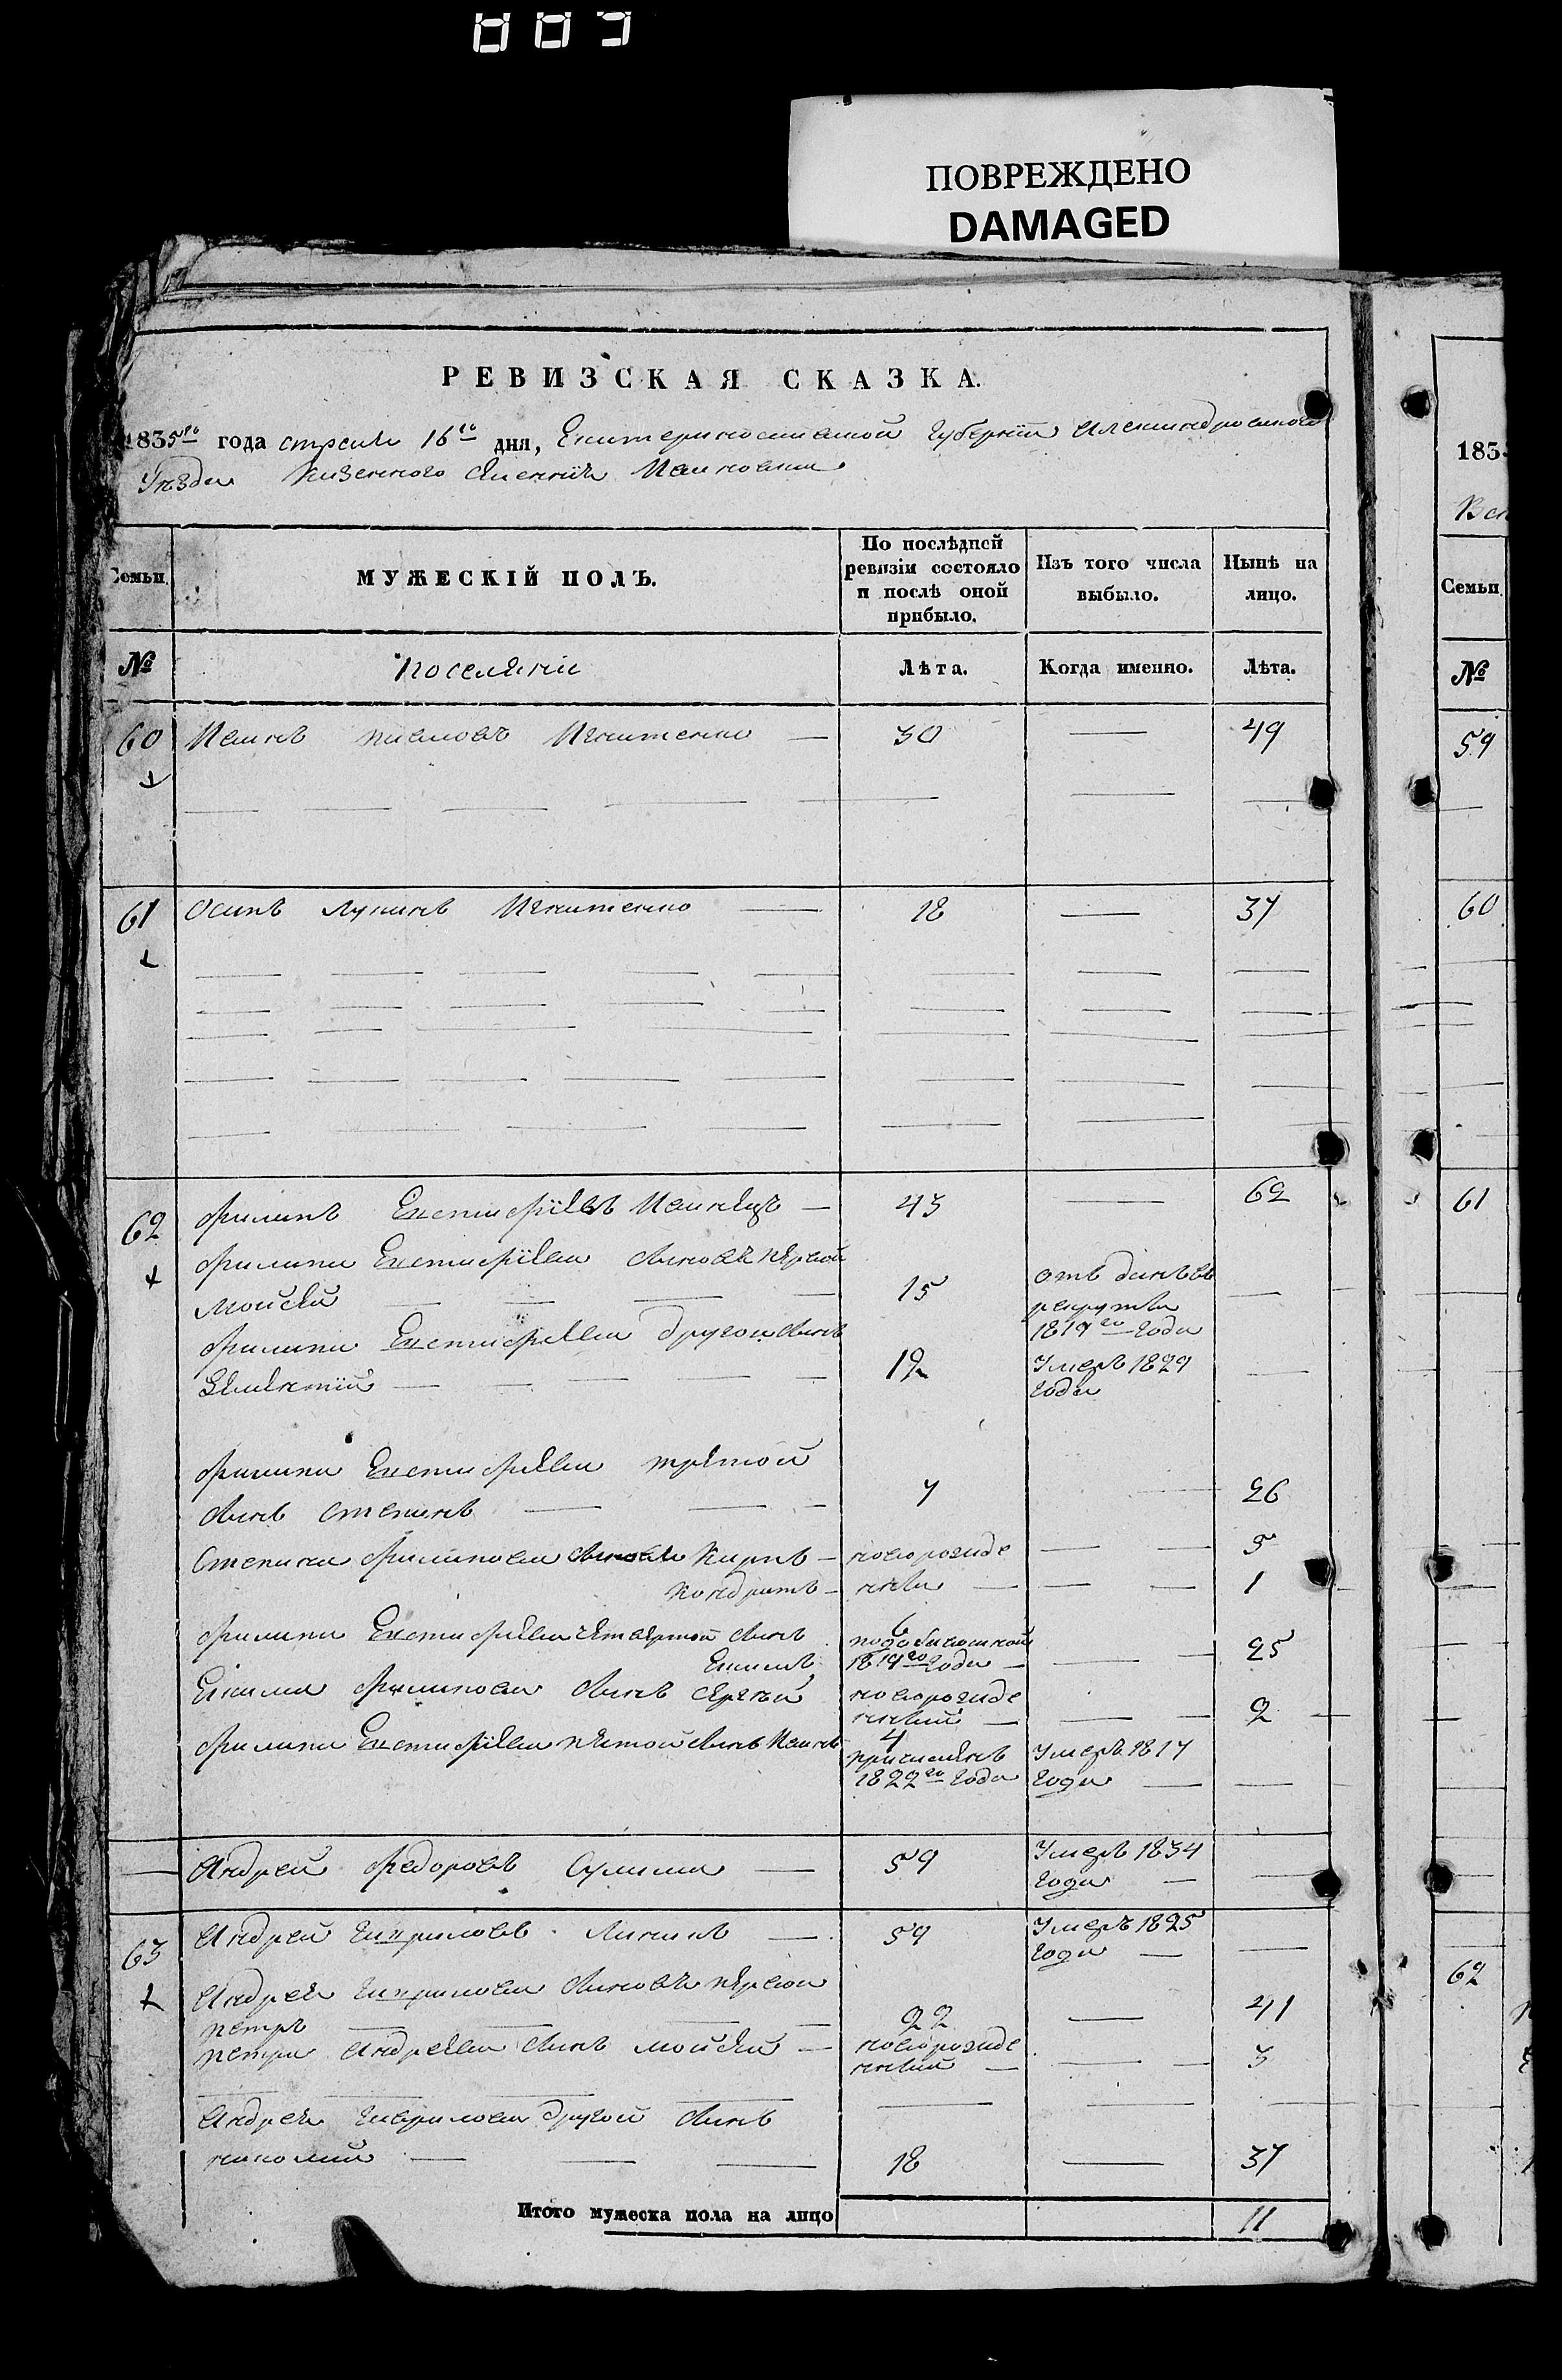 ПОВРЕЖДЕНО
DAMAGED
РЕВИЗСКАЯ СКАЗКА.
1835го года 16го дня, Екатеринославской Губернїи Александровского
Уѣзда Казенного Селенїя Ивановки
Семьи.
МУЖЕСКІЙ ПОЛЪ.
По послѣдней ревизіи состояло и послѣ оной прибыло.
Изъ того числа выбыло.
Нынѣ на лицо.
№
поселянѣ
Лѣта.
Когда именно.
Лѣта.
60 Иванъ Павловъ Игнатенко — 30 — 49
61 Осипъ Лукинъ Игнатенко — 18 — 37
62 Филипъ Евстафїевъ Иванѣцъ — 43 — 62
Филипа Евстафїева сыновья первой
Мойсей — 15 отъ данъ въ рекруты 1819го года —
Филипа Евстафїева другой сынъ
12 Умеръ 1829 года —
Филипа Евстафїева третой
сынъ Степанъ — 7 — 26
Степана Филипова сыновья Карпъ — новорожде — 5
Кондратъ — нные — 1
Филипа Евстафїева четвертой сынъ
Екимъ 6 1819го года — 25
Екима Филипова сынъ Сергѣй новорожде
нный — 2
Филипа Евстафїева пятой сынъ Иванъ 4
причисленъ 1822го года Умеръ 1817 года —
— Андрей Федоровъ Сулима — 59 Умеръ 1834 года —
63 Андрей Гавриловъ Ликинъ — 59 Умеръ 1825 года —
Андрея Гаврилова сыновья первой
Петръ — 22 — 41
Петра Андреева сынъ Мойсей — новорожде
нный — 3
Андрея Гаврилова другой сынъ
Николай — 18 — 37
Итого мужеска пола на лицо 11
183
Семьи
№
59
60
61
62